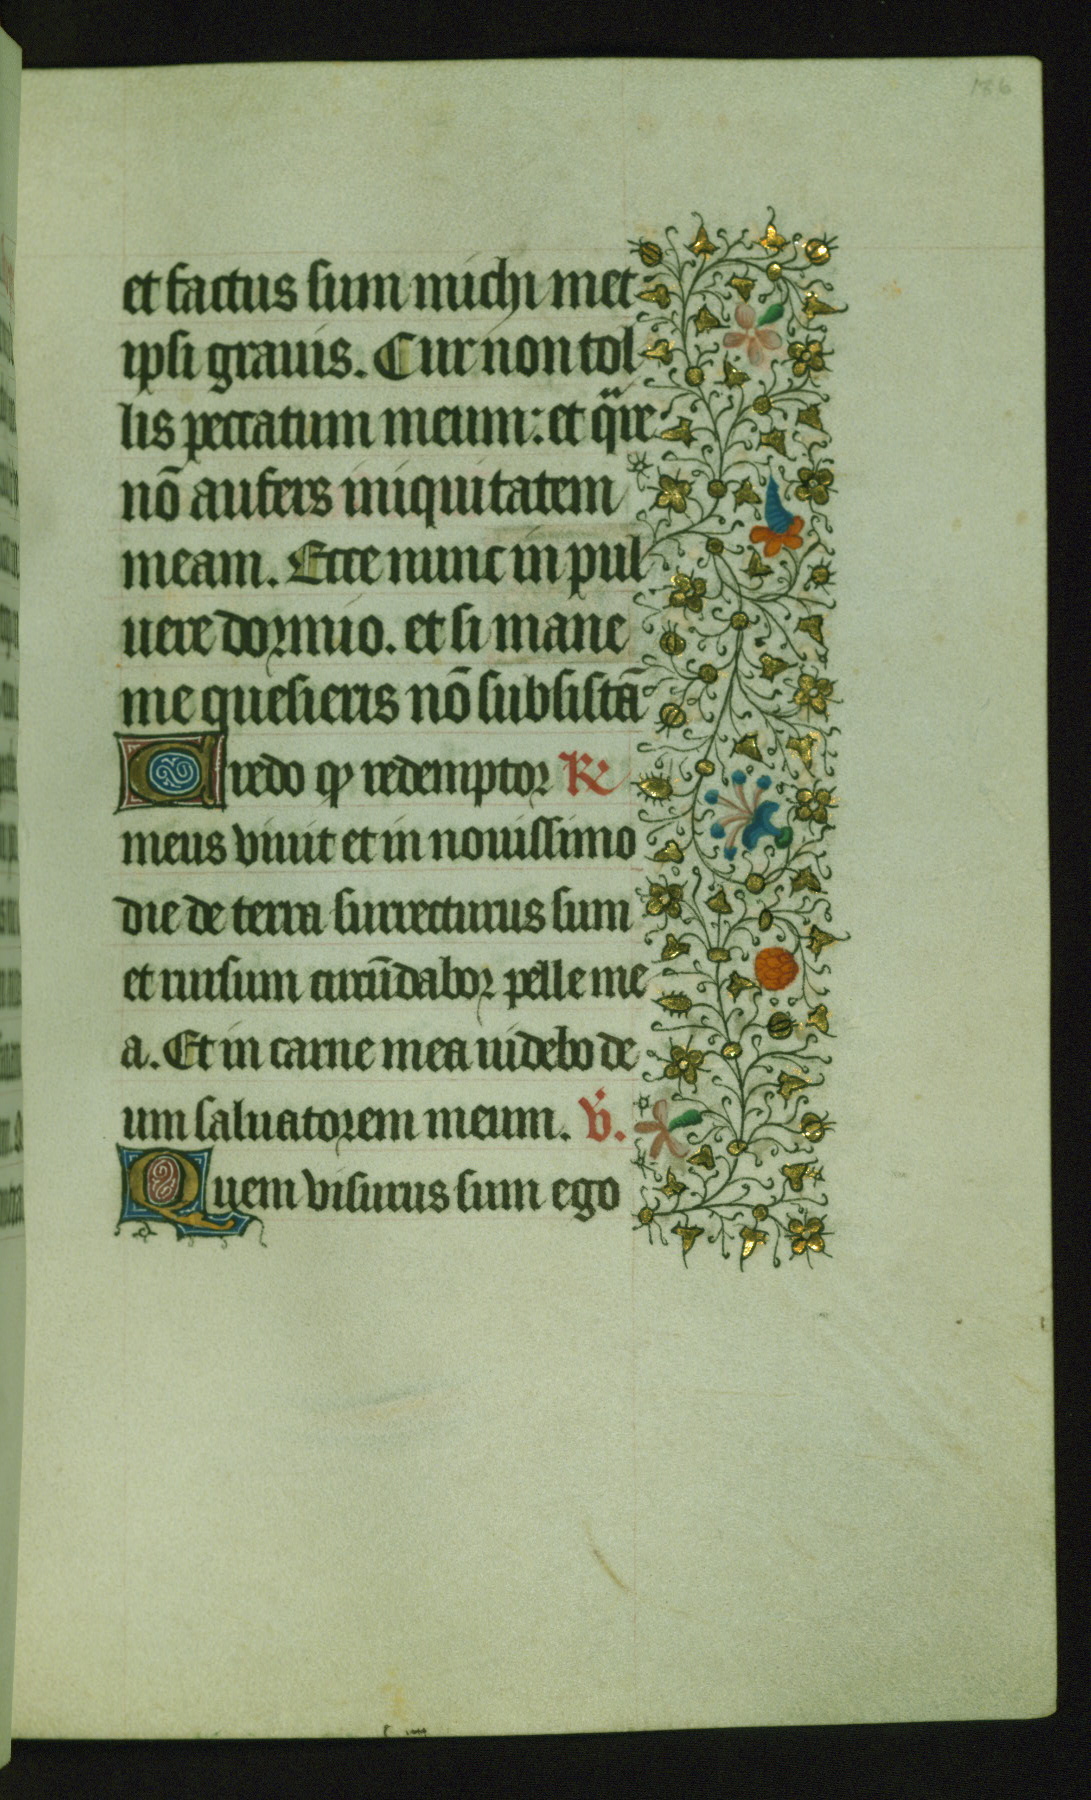 186
et factus sum michi met
ipsi grauis. Cur non tol
lis peccatum meum: et q̈re
nō aufers iniquitatem
meam. Ecce nunc in pul
uere dormio. et si mane
me quesieris nō subsistā
Credo ꝙ redemptor ℟
meus viuit et in nouissimo
die de terra surrecturus sum
et rursum circūdabor pelle me
a. Et in carne mea uidebo de
um saluatorem meum. v̇.
Quem visurus sum ego